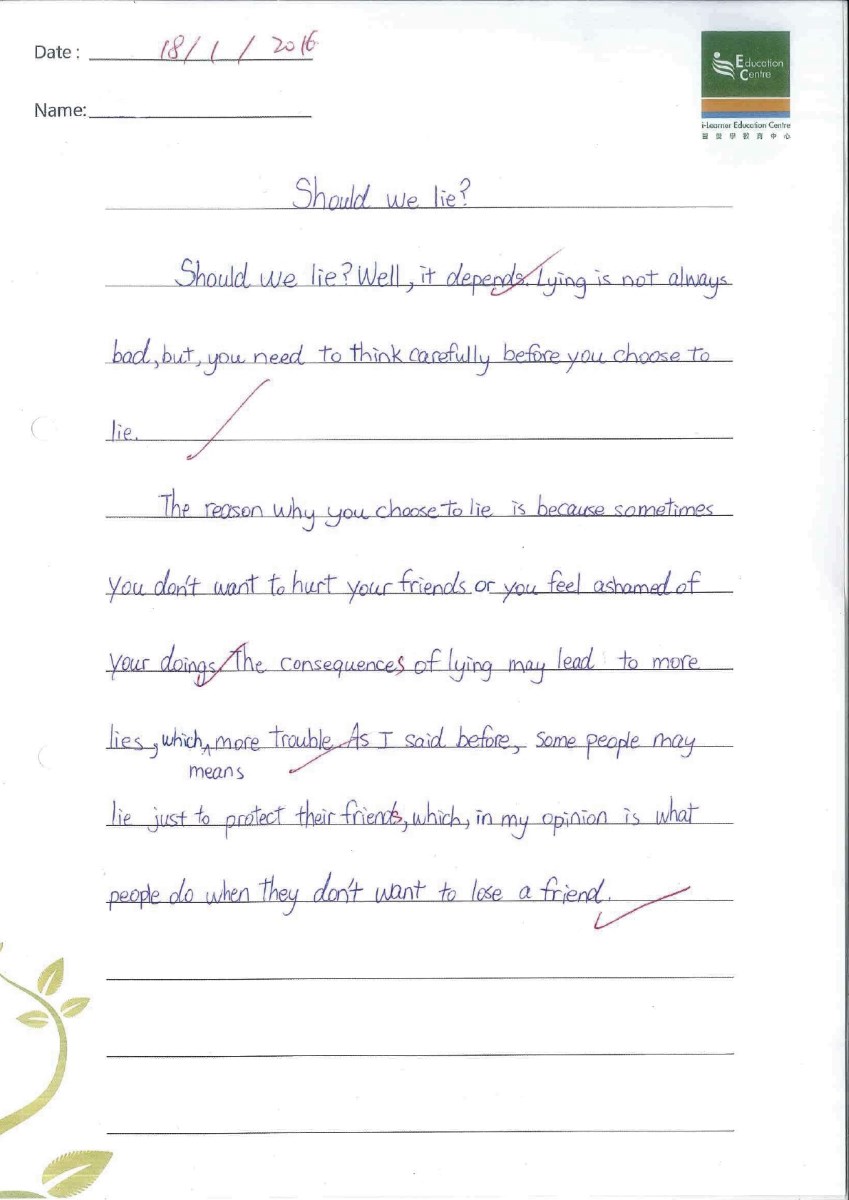 Date : 18/1/2016
Education
Centre
Name:
i-Learner Education Centre
Should we lie?
Should we lie? Well, it depends. Lying is not always
bad, but, you need to think carefully before you choose to
lie.
The reason why you choose to lie is because sometimes
you don't want to hurt your friends or you feel ashamed of
your doings. The consequences of lying may lead to more
lies, which more trouble. As I said before, some people may
means
lie just to protect their friends, which, in my opinion is what
people do when they don't want to lose a friend.